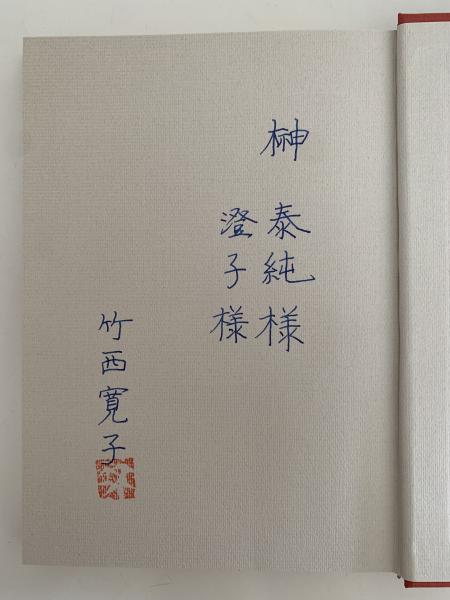 榊 泰純様
澄子様
竹西寛子